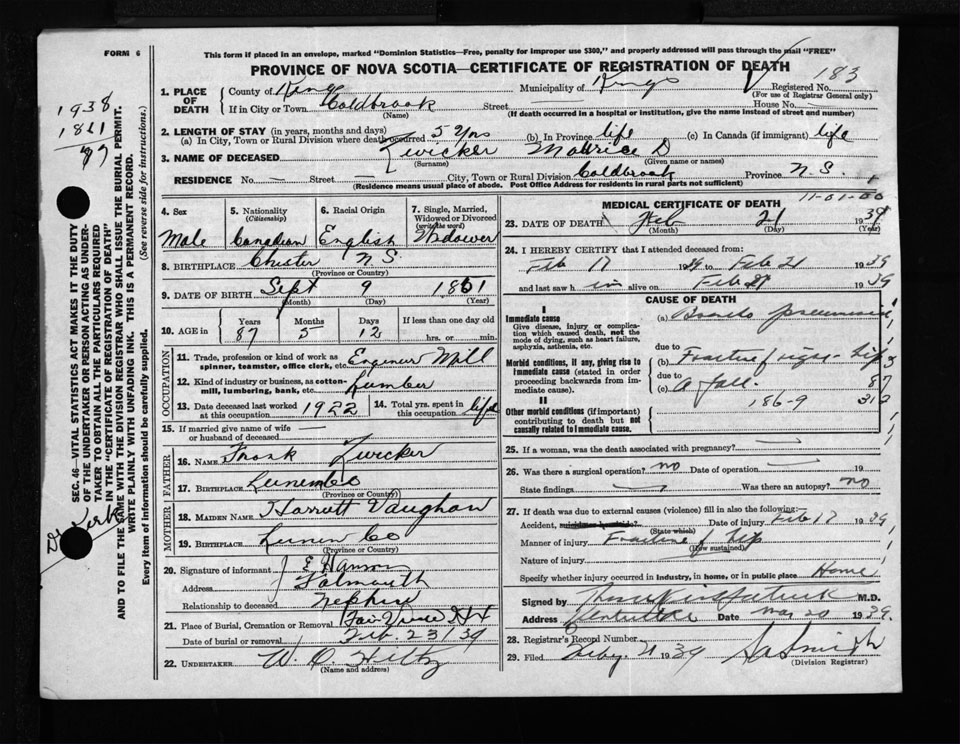 FORM 6
This form if placed in an envelope, marked "Dominion Statistics—Free, penalty for improper use $300," and properly addressed will pass through the mail "FREE"
PROVINCE OF NOVA SCOTIA—CERTIFICATE OF REGISTRATION OF DEATH
183
1938
1851
87
SEC. 46—VITAL STATISTICS ACT MAKES IT THE DUTY OF THE UNDERTAKER OR PERSON ACTING AS UNDERTAKER TO OBTAIN ALL THE PARTICULARS REQUIRED IN THE "CERTIFICATE OF REGISTRATION OF DEATH"
AND TO FILE THE SAME WITH THE DIVISION REGISTRAR WHO SHALL ISSUE THE BURIAL PERMIT.
WRITE PLAINLY WITH UNFADING INK. THIS IS A PERMANENT RECORD.
Every item of information should be carefully supplied. (See reverse side for instructions.)
1. PLACE OF DEATH
County of Kings Municipality of Kings Registered No.
(For use of Registrar General only)
If in City or Town Coldbrook Street — House No. —
(Name) (If death occurred in a hospital or institution, give the name instead of street and number)
2. LENGTH OF STAY (in years, months and days)
(a) In City, Town or Rural Division where death occurred 5 yrs (b) In Province life (c) In Canada (if immigrant) life
3. NAME OF DECEASED Zwicker Maurice D
(Surname) (Given name or names)
RESIDENCE No. — Street — City, Town or Rural Division Coldbrook Province N.S.
(Residence means usual place of abode. Post Office Address for residents in rural parts not sufficient)
4. Sex Male
5. Nationality (Citizenship) Canadian
6. Racial Origin English
7. Single, Married, Widowed or Divorced (write the word) Widower
8. BIRTHPLACE Chester N.S.
(Province or Country)
9. DATE OF BIRTH Sept 9 1851
(Month) (Day) (Year)
10. AGE in Years Months Days If less than one day old
87 5 12 hrs. or min.
OCCUPATION
11. Trade, profession or kind of work as spinner, teamster, office clerk, etc. Engineer Mill
12. Kind of industry or business, as cotton-mill, lumbering, bank, etc. Lumber
13. Date deceased last worked at this occupation 1922
14. Total yrs. spent in this occupation life
15. If married give name of wife or husband of deceased —
FATHER
16. NAME Frank Zwicker
17. BIRTHPLACE Lunen Co
(Province or Country)
MOTHER
18. MAIDEN NAME Harriett Vaughan
19. BIRTHPLACE Lunen Co
(Province or Country)
20. Signature of informant E Hanson
Address Falmouth
Relationship to deceased Nephew
21. Place of Burial, Cremation or Removal Fair View Hx
Date of burial or removal Feb. 23/39
22. UNDERTAKER W. O. Hiltz
(Name and address)
MEDICAL CERTIFICATE OF DEATH
11-01-00
23. DATE OF DEATH Feb 21 1939
(Month) (Day) (Year)
24. I HEREBY CERTIFY that I attended deceased from:
Feb 17 1939 to Feb 21 1939
and last saw him alive on Feb 21 1939
CAUSE OF DEATH
I
Immediate cause
Give disease, injury or complication which caused death, not the mode of dying, such as heart failure, asphyxia, asthenia, etc.
(a) Broncho pneumonia
due to
Morbid conditions, if any, giving rise to immediate cause (stated in order proceeding backwards from immediate cause).
(b) Fracture of hip
due to
(c) a fall.
186-9
3
87
312
II
Other morbid conditions (if important) contributing to death but not causally related to immediate cause.
25. If a woman, was the death associated with pregnancy? —
26. Was there a surgical operation? no Date of operation — 19
State findings — Was there an autopsy? no
27. If death was due to external causes (violence) fill in also the following:
Accident, suicide or homicide? Date of injury Feb 17 1939
(State which)
Manner of injury Fracture of hip
(How sustained)
Nature of injury
Specify whether injury occurred in industry, in home, or in public place Home
Signed by M.D.
Address Centreville Date Mar 20 1939
28. Registrar's Record Number
29. Filed Feby. 21 1939 Smith
(Division Registrar)